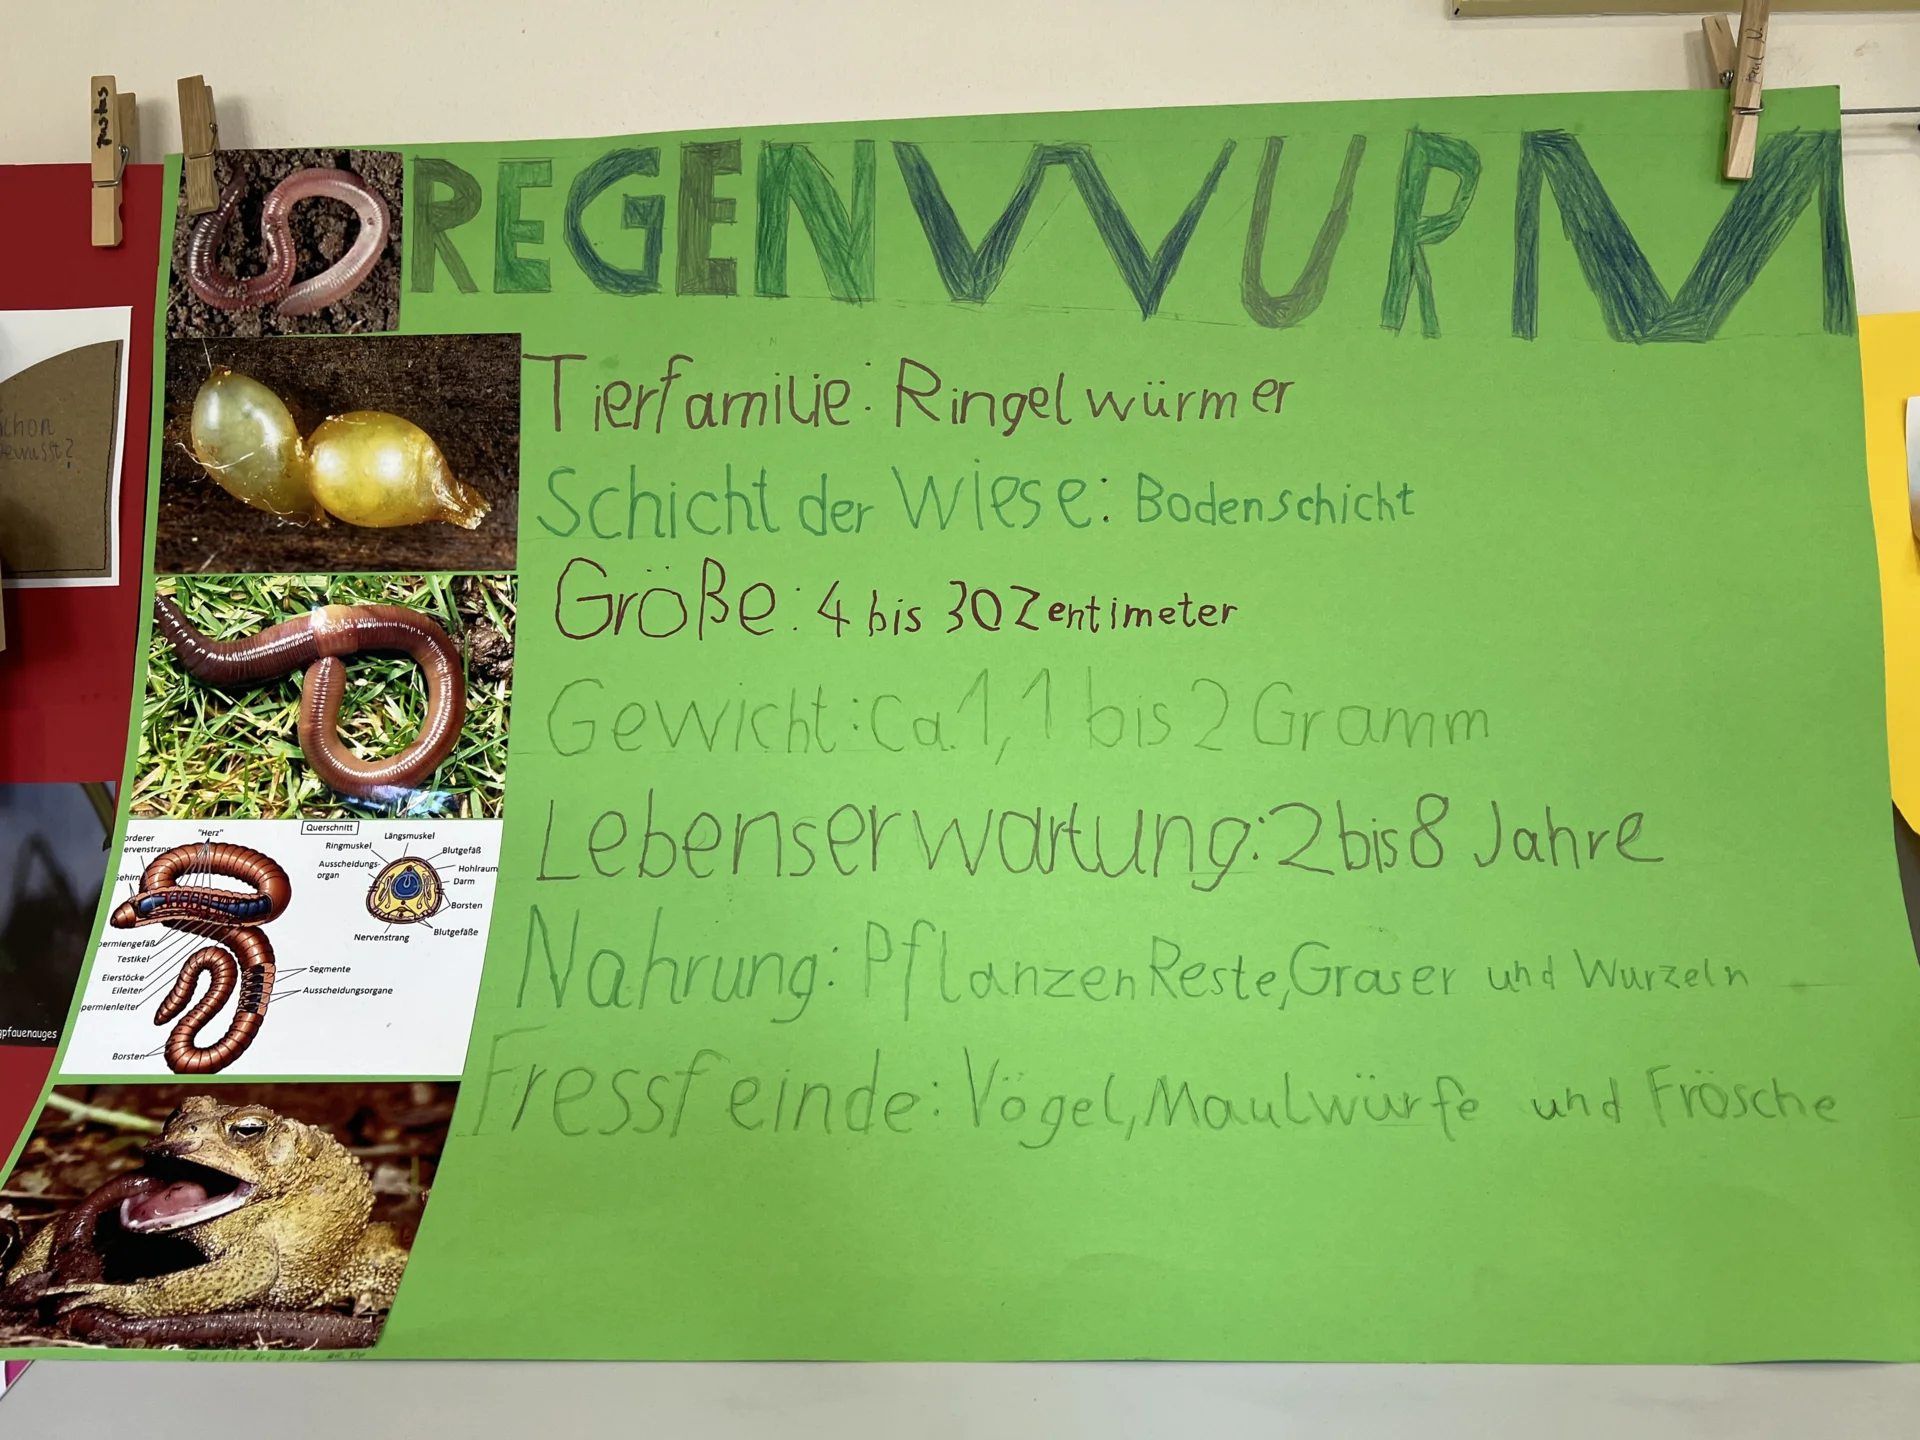 REGENWURM
Tierfamilie: Ringelwürmer
Schicht der Wiese: Bodenschicht
Größe: 4 bis 30 Zentimeter
Gewicht: Ca. 1,1 bis 2 Gramm
Lebenserwartung: 2 bis 8 Jahre
Nahrung: PflanzenReste, Gräser und Wurzeln
Fressfeinde: Vögel, Maulwürfe und Frösche
"Herz"
Querschnitt
Längsmuskel
Ringmuskel
Blutgefäß
Ausscheidungs-
organ
Hohlraum
Darm
Borsten
Blutgefäße
Nervenstrang
orderer
ervenstrang
Gehirn
permiengefäß
Testikel
Eierstöcke
Eileiter
permienleiter
Borsten
Segmente
Ausscheidungsorgane
chon
ewusst?
gpfauenauges
Paul